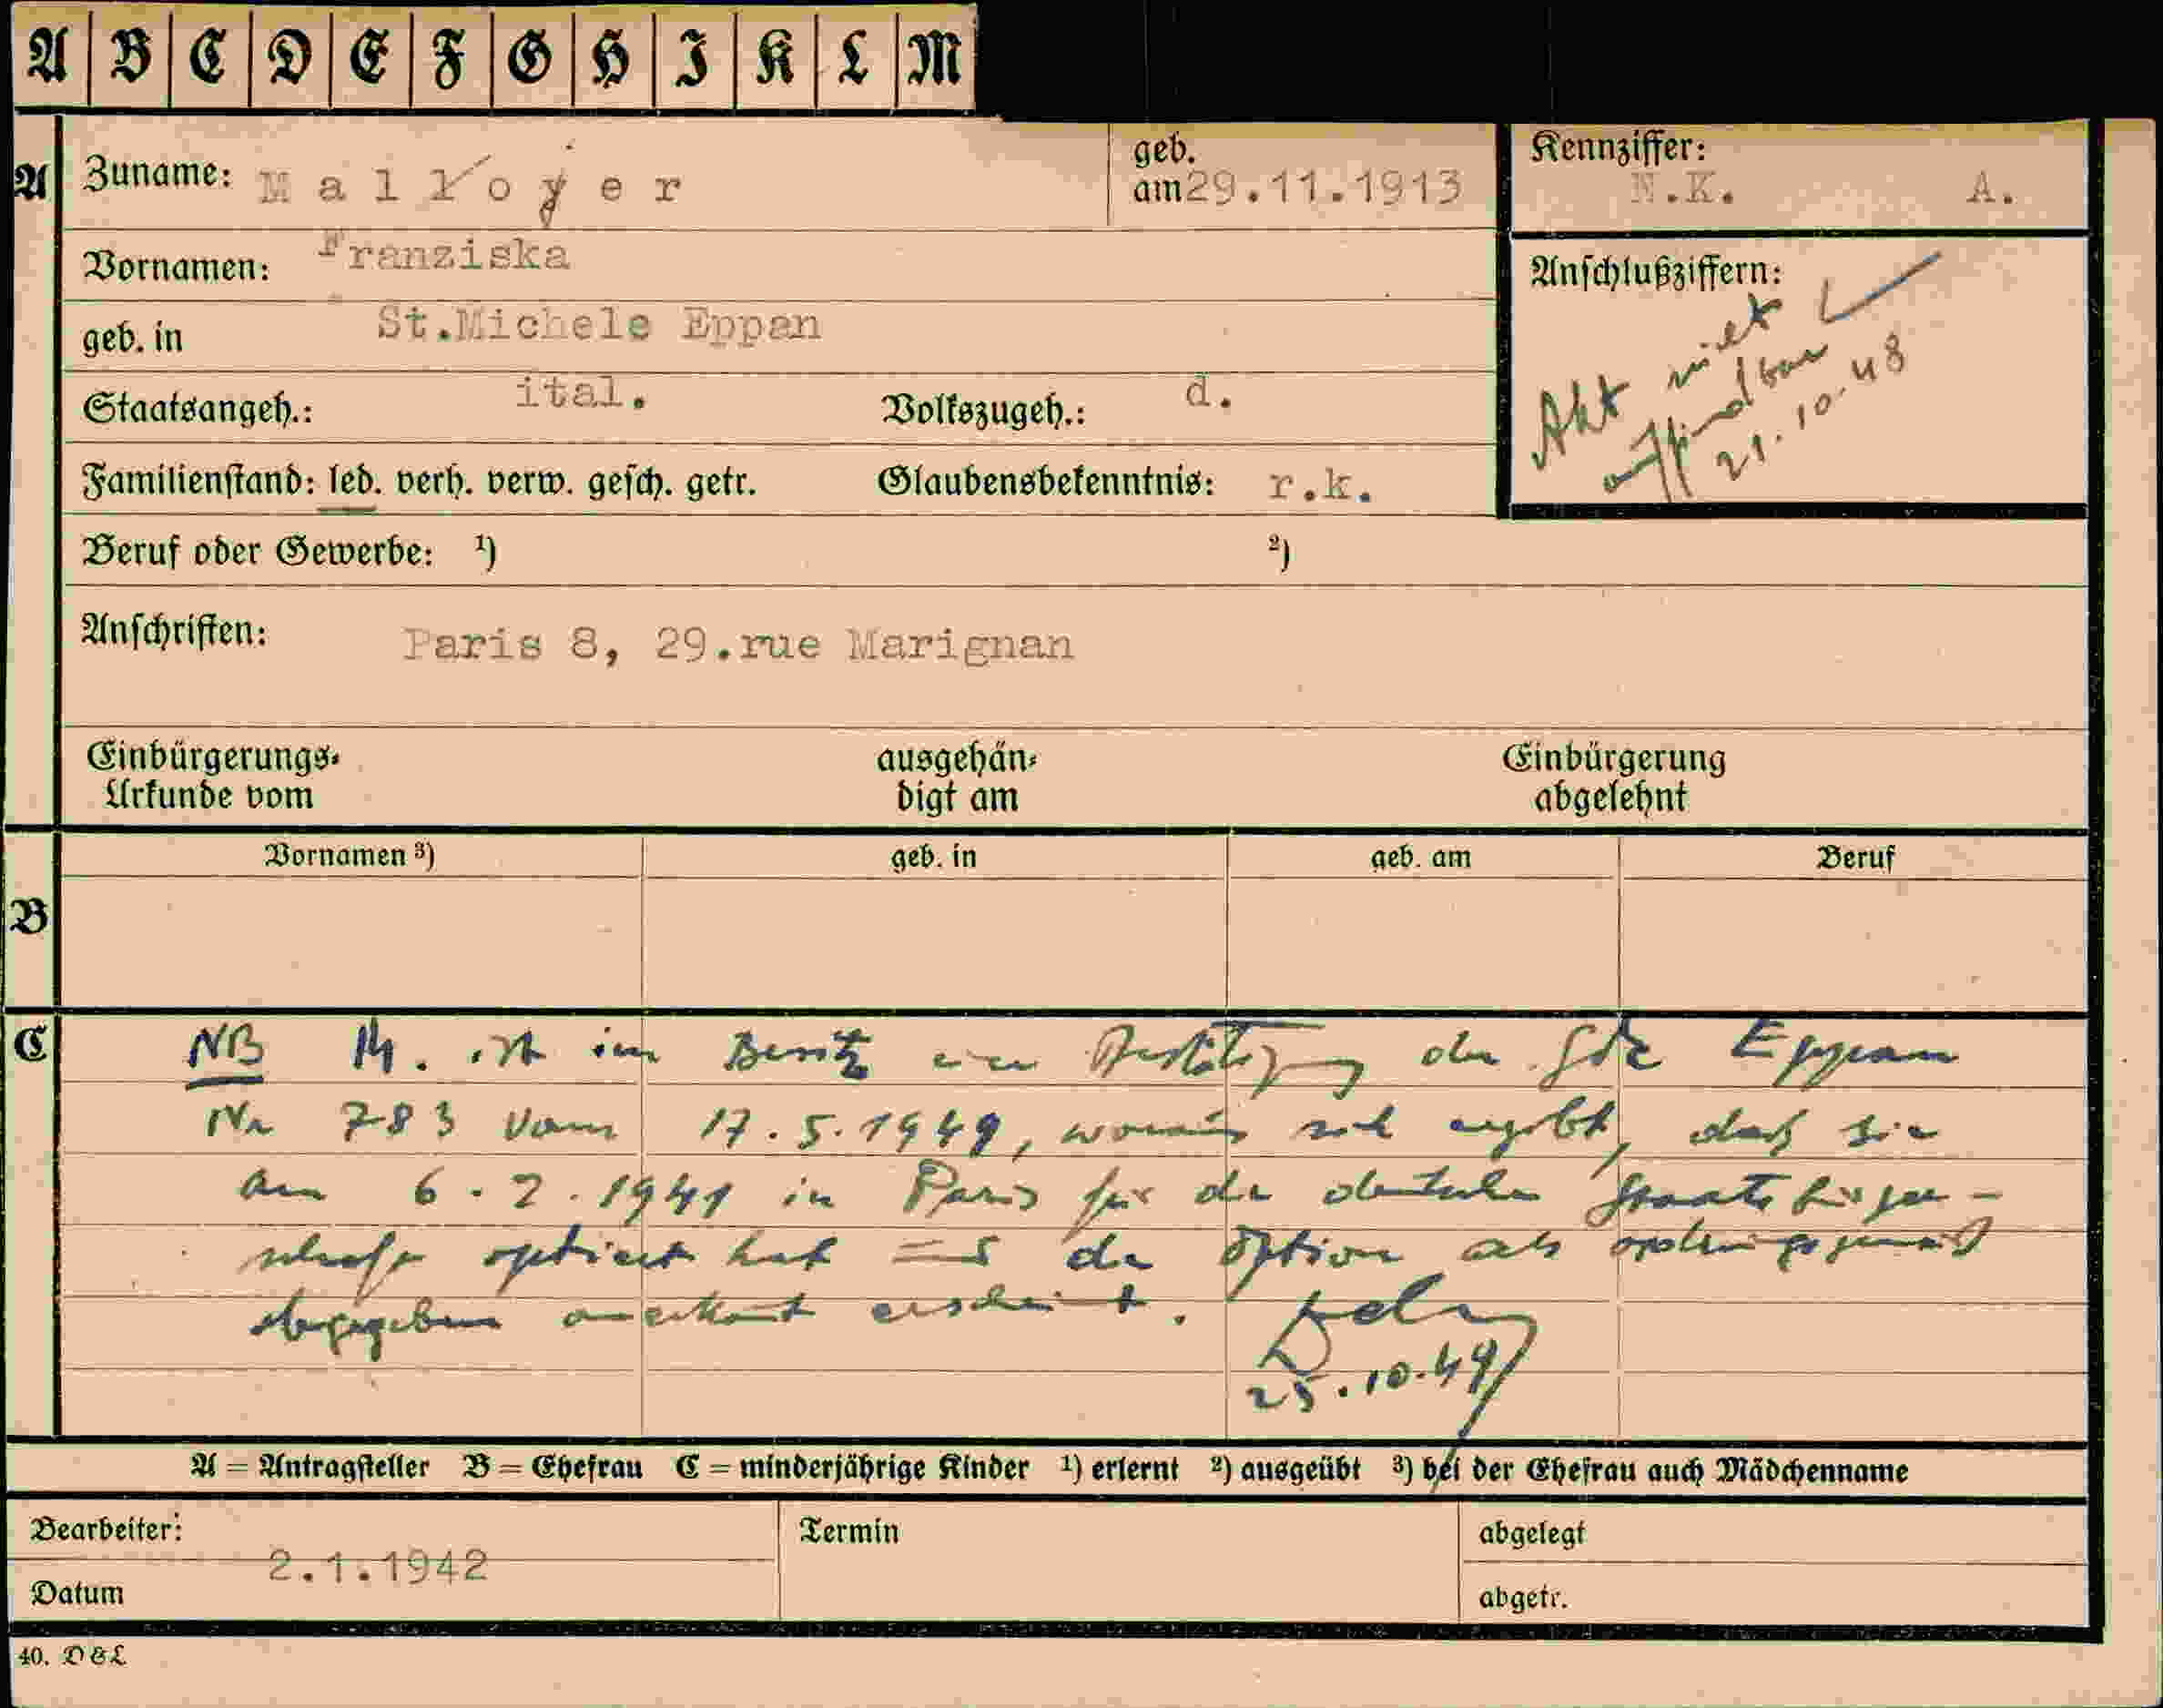 A B C D E F G H I K L M
A
Zuname: Malloyer
geb. am 29.11.1913
Kennziffer: N.K. A.
Vornamen: Franziska
Anschlußziffern:
Akt nicht
auffindbar
21.10.48
geb. in St.Michele Eppan
Staatsangeh.: ital. Volkszugeh.: d.
Familienstand: led. verh. verw. gesch. getr. Glaubensbekenntnis: r.k.
Beruf oder Gewerbe: 1) 2)
Anschriften: Paris 8, 29.rue Marignan
Einbürgerungs- ausgehän- Einbürgerung
Urkunde vom digt am abgelehnt
B
Vornamen 3) geb. in geb. am Beruf
C
NB M. ist im Besitz einer Bestätigung der Gde Eppan
Nr 783 vom 17.5.1949, woraus sich ergibt, daß sie
am 6.2.1941 in Paris für die deutsche Staatsbürger-
schaft optiert hat und die Option als ordnungsgemäß
abgegeben anerkannt erscheint.
25.10.49
A = Antragsteller B = Ehefrau C = minderjährige Kinder 1) erlernt 2) ausgeübt 3) bei der Ehefrau auch Mädchenname
Bearbeiter: Termin abgelegt
2.1.1942
Datum abgetr.
40. D&L